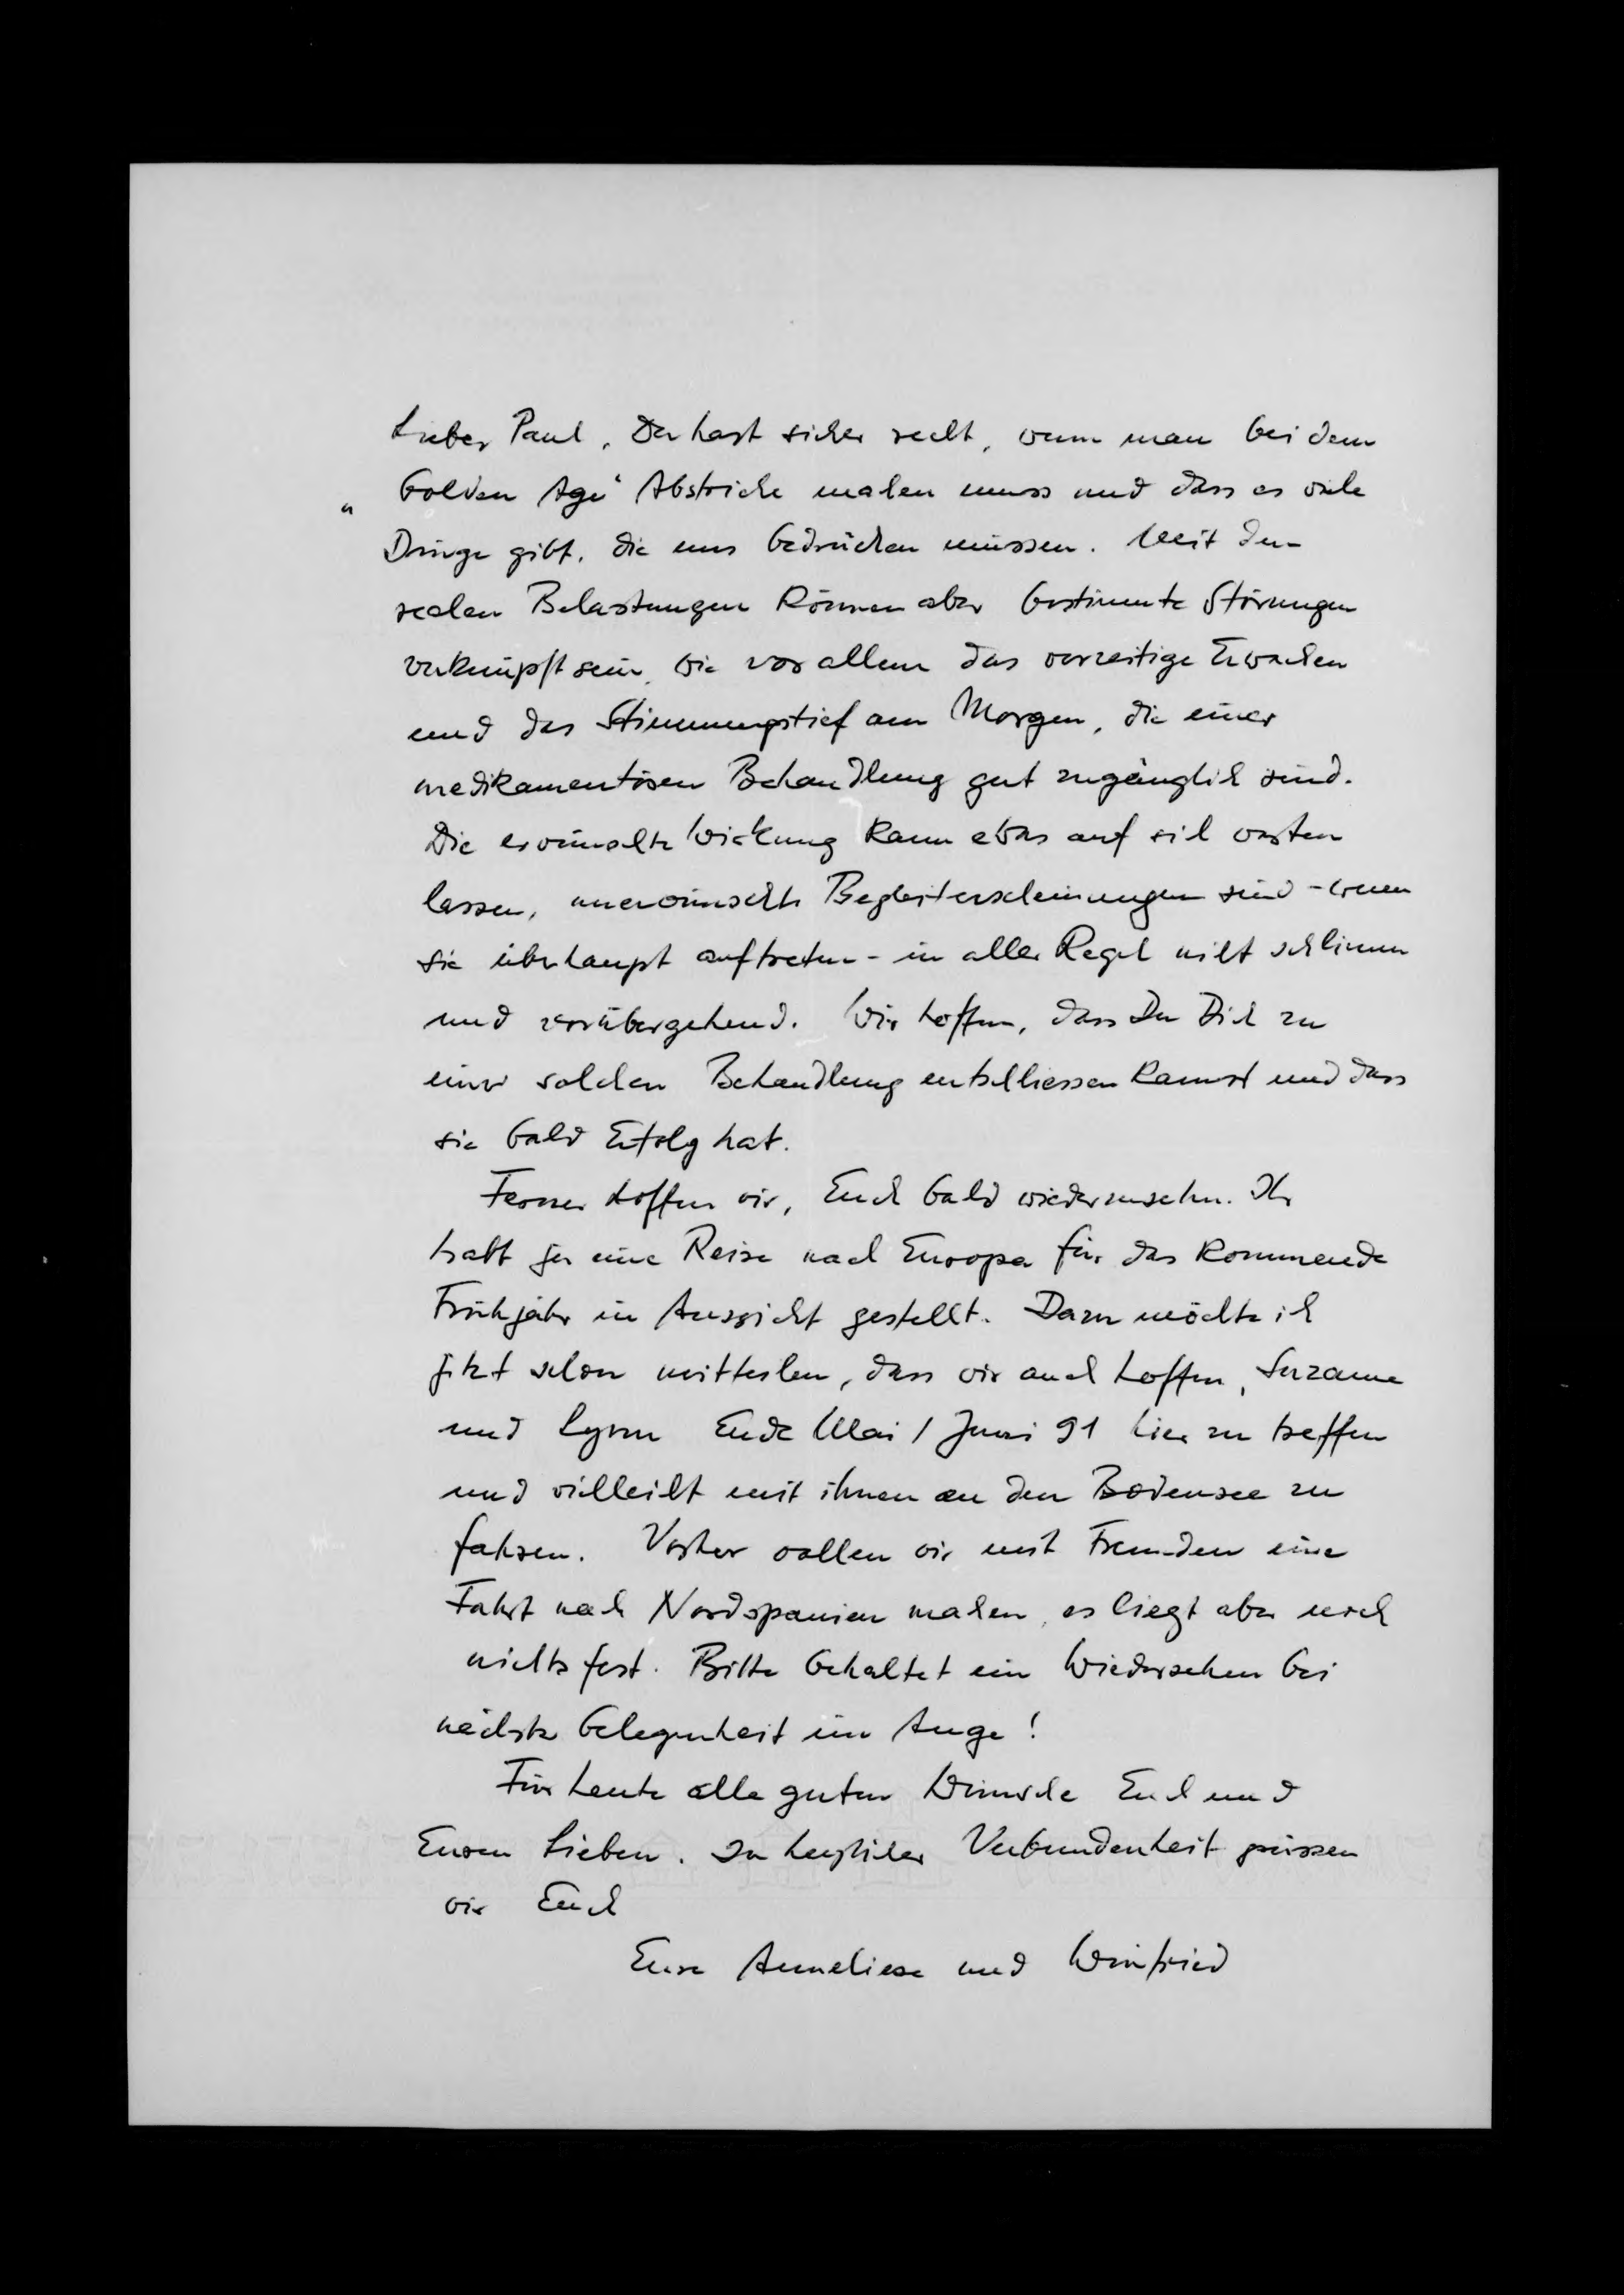 Lieber Paul, Du hast sicher recht, wenn man bei dem
"Golden Age" Abstriche machen muss und dass es viele
Dinge gibt, die uns bedrücken müssen. Mit den
realen Belastungen können aber bestimmte Störungen
verknüpft sein, wie vor allem das vorzeitige Erwachen
und das Stimmungstief am Morgen, die einer
medikamentösen Behandlung gut zugänglich sind.
Die erwünschte Wirkung kann etwas auf sich warten
lassen, unerwünschte Begleiterscheinungen sind - wenn
sie überhaupt auftreten - in aller Regel nicht schlimm
und vorübergehend. Wir hoffen, dass Du Dich zu
einer solchen Behandlung entschliessen kannst und dass
sie bald Erfolg hat.
Ferner hoffen wir, Euch bald wiederzusehn. Ihr
habt ja eine Reise nach Europa für das kommende
Frühjahr in Aussicht gestellt. Dazu möchte ich
jetzt schon mitteilen, dass wir auch hoffen, Suzanne
und Lynn Ende Mai / Juni 91 hier zu treffen
und vielleicht mit ihnen an den Bodensee zu
fahren. Vorher wollen wir mit Freunden eine
Fahrt nach Nordspanien machen, es liegt aber noch
nichts fest. Bitte behaltet ein Wiedersehen bei
nächster Gelegenheit im Auge!
Für heute alle guten Wünsche Euch und
Euren Lieben. In herzlicher Verbundenheit grüssen
wir Euch
Eure Anneliese und Winfried